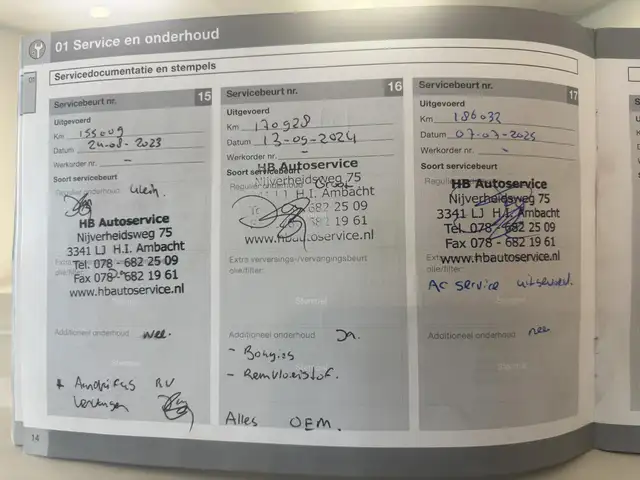 01 Service en onderhoud
Servicedocumentatie en stempels
Servicebeurt nr. 15
Uitgevoerd
Km 155009
Datum 24-08-2023
Werkorder nr. -
Soort servicebeurt
Regulier onderhoud Klein.
HB Autoservice
Nijverheidsweg 75
3341 LJ H.I. Ambacht
Tel. 078 - 682 25 09
Fax 078 - 682 19 61
www.hbautoservice.nl
Additioneel onderhoud nee.
+ Aandrijfas RV
14
Servicebeurt nr. 16
Uitgevoerd
Km 170928
Datum 13-09-2024
Werkorder nr. -
Soort servicebeurt
HB Autoservice
Nijverheidsweg 75
Regulier onderhoud Groot
LJ H.I. Ambacht
682 25 09
682 19 61
www.hbautoservice.nl
Extra verversings-/vervangingsbeurt
olie/filter:
Additioneel onderhoud Ja.
- Bougies
- Remvloeistof.
Alles OEM.
Servicebeurt nr. 17
Uitgevoerd
Km 186032
Datum 07-07-2025
Werkorder nr. -
Soort servicebeurt
HB Autoservice
Nijverheidsweg 75
3341 LJ H.I. Ambacht
Tel. 078 - 682 25 09
Fax 078 - 682 19 61
www.hbautoservice.nl
olie/filter:
AC service uitgevoerd.
Additioneel onderhoud nee